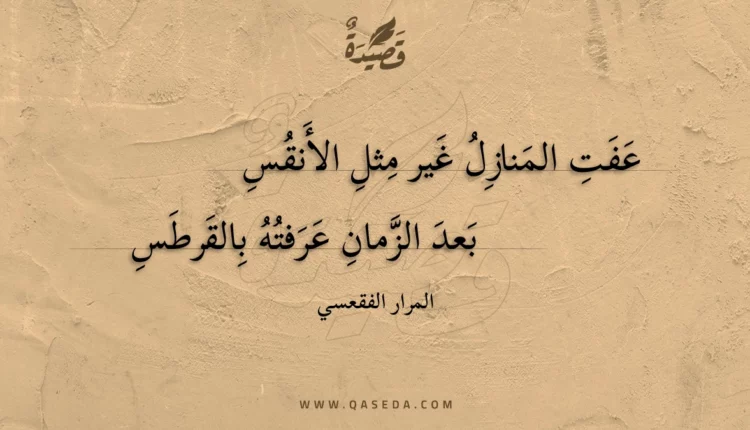 قَصِيْدَةٌ
عَفَتِ المَنازِلُ غَير مِثلِ الأَنقُسِ
بَعدَ الزَّمانِ عَرَفتُهُ بِالقَرطَسِ
المرار الفقعسي
WWW.QASEDA.COM